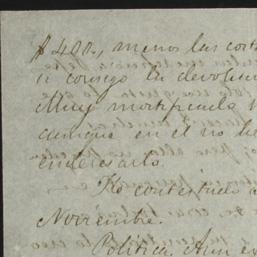 $400., menos las cort
si consigo la devoluc
Muy mortificado
aunque en el no he
enderesarlo.
He contestado a
Noviembre.
Politica. Aun e